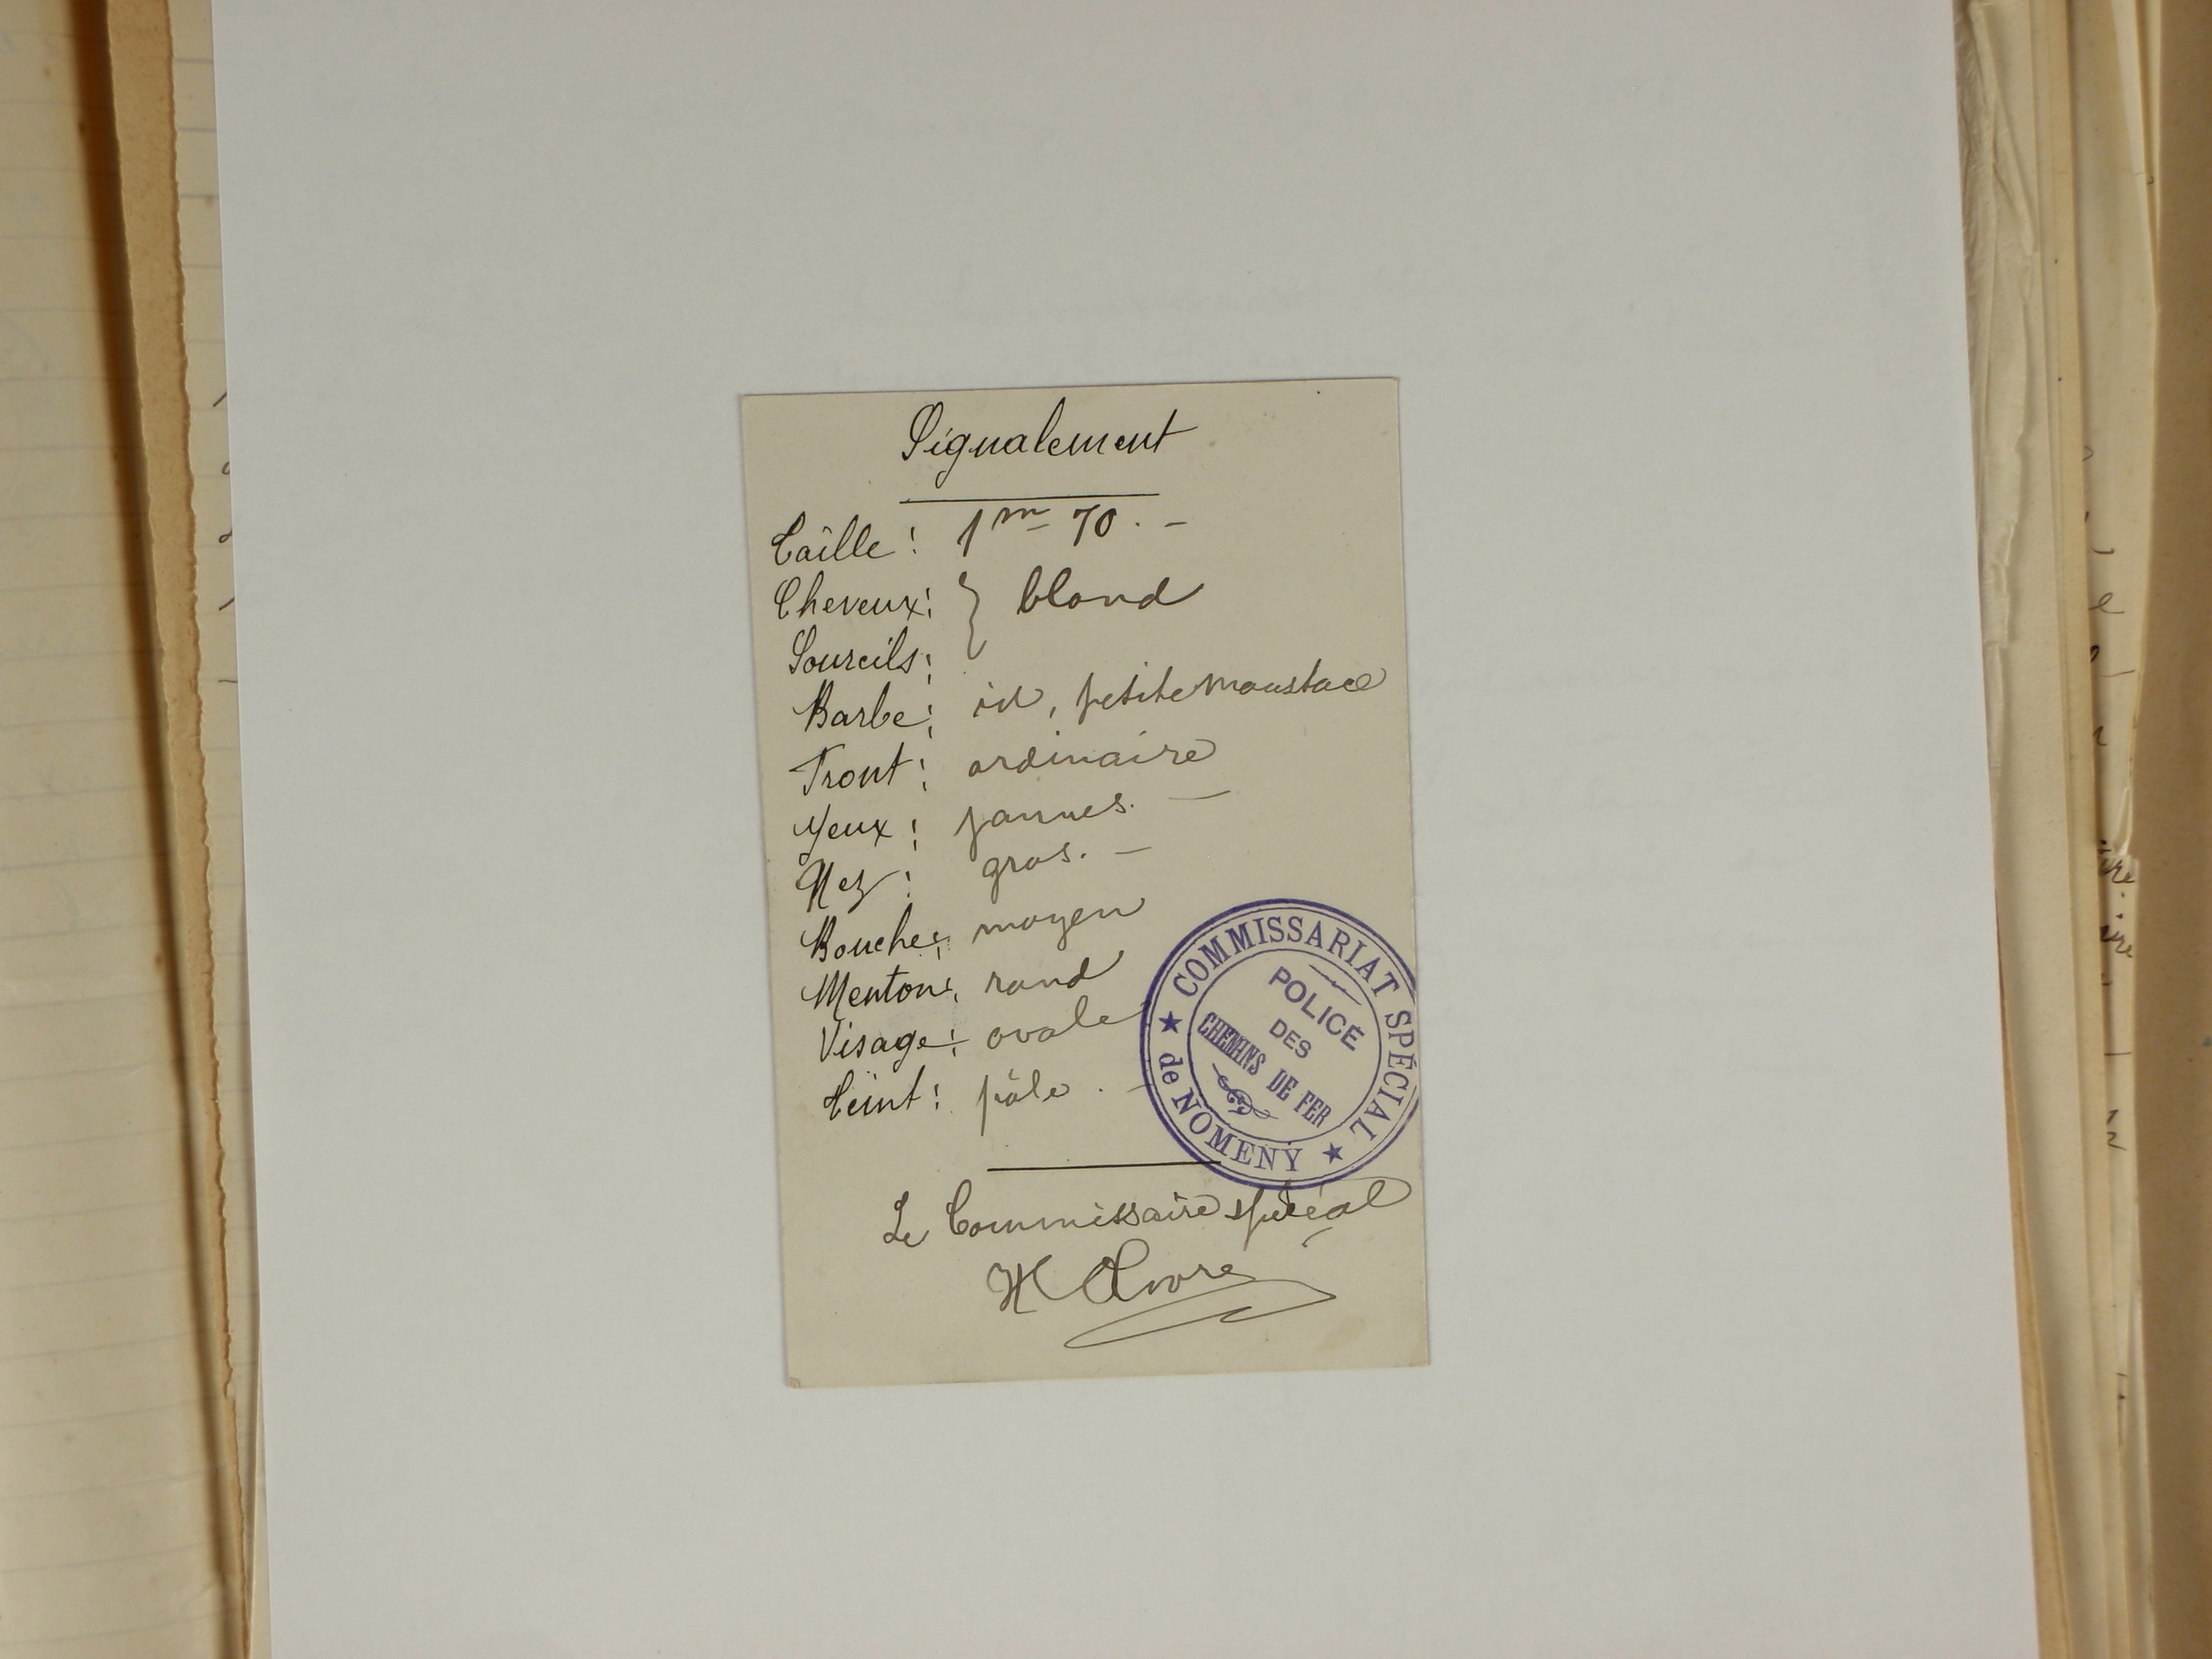 Signalement
Taille : 1m 70. -
Cheveux : } blond
Sourcils :
Barbe : id, petite moustace
Front : ordinaire
Yeux : jaunes. -
Nez : gros. -
Bouche : moyen
Menton : rond
Visage : ovale
Teint : pâle. -
COMMISSARIAT SPÉCIAL
de NOMENY
POLICE
DES
CHEMINS DE FER
Le Commissaire spécial